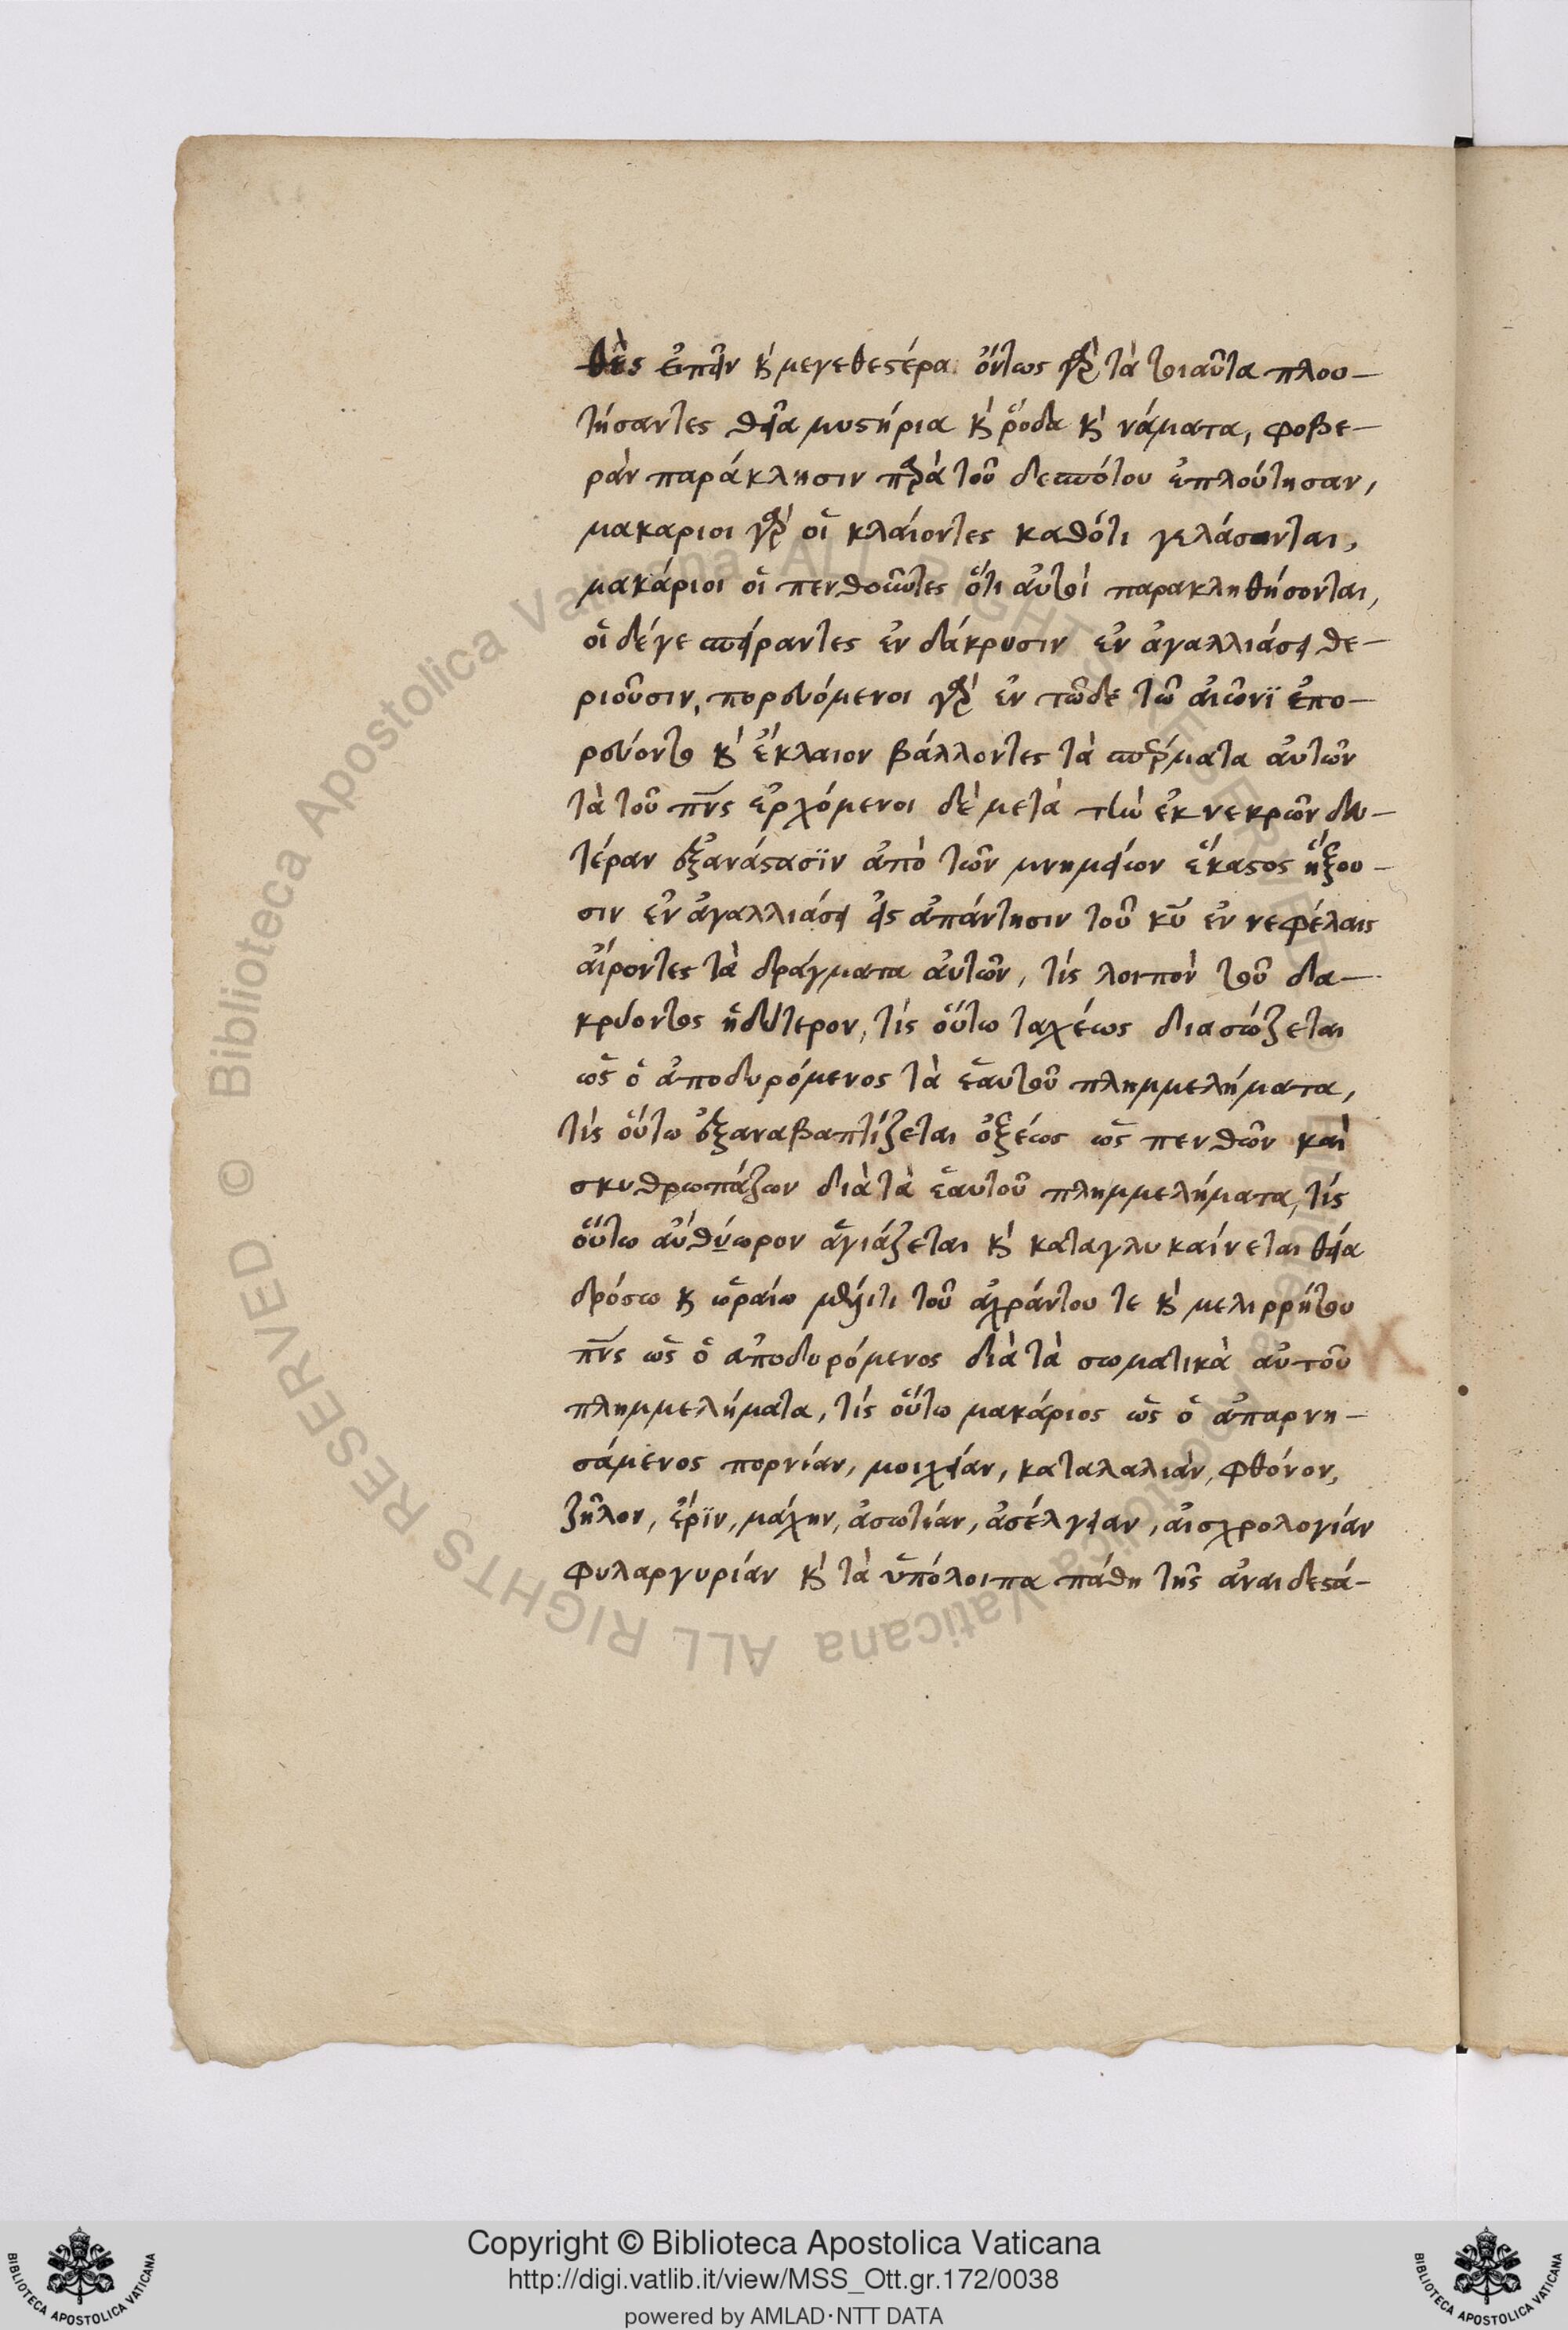 θὲς εἰπεῖν κ̀ μεγεθεστέρα. ὄντως γὰρ τὰ τοιαῦτα πλου-
τήσαντες θεῖα μυστήρια κ̀ ῥόδα κ̀ νάματα, φοβε-
ρὰν παράκλησιν παρὰ τοῦ δεσπότου ἐπλούτησαν,
μακαριοι γὰρ οἱ κλαίοντες καθότι γελάσονται,
μακάριοι οἱ πενθοῦντες ὅτι αὐτοὶ παρακληθήσονται,
οἱ δέγε σπείραντες ἐν δάκρυσιν ἐν ἀγαλλιάσει θε-
ριοῦσιν, πορευόμενοι γὰρ ἐν τῶδε τῶ αἰῶνϊ ἐπο-
ρεύοντο κ̀ ἔκλαιον βάλλοντες τὰ σπέρματα αὐτῶν
τὰ τοῦ πν̅ς ἐρχόμενοι δὲ μετὰ τὴν ἐκ νεκρῶν δευ-
τέραν ἐξανάστασϊν ἀπὸ τῶν μνημείων ἕκαστος ἥξου-
σιν ἐν ἀγαλλιάσει εἰς ἀπάντησιν τοῦ κυ̅ ἐν νεφέλαις
αἴροντες τὰ δράγματα αὐτῶν, τίς λοιπὸν τοῦ δα-
κρύοντος ἡδύτερον, τίς οὕτω ταχέως διασώζεται
ὡς ὁ ἀποδυρόμενος τὰ ἑαυτοῦ πλημμελήματα,
τίς οὕτω ἐξαναβαπτίζεται ὀξέως ὡς πενθῶν καὶ
σκυθρωπάζων διὰ τὰ ἑαυτοῦ πλημμελήματα, τίς
οὕτω αὐθύωρον ἁγιάζεται κ̀ καταγλυκαίνεται θεία
δρόσω κ̀ ὡραίω μέλιτι τοῦ ἀχράντου τε κ̀ μελιρρήτου
πν̅ς ὡς ὁ ἀποδυρόμενος διὰ τὰ σωματικὰ αὐτοῦ
πλημμελήματα, τίς οὕτω μακάριος ὡς ὁ ἀπαρνη-
σάμενος πορνίαν, μοιχείαν, καταλαλιὰν, φθόνον,
ζῆλον, ἔρϊν, μάχην, ἀσωτίαν, ἀσέλγειαν, αἰσχρολογίαν
φυλαργυρίαν κ̀ τὰ ὑπόλοιπα πάθη τῆς ἀναιδεστά-
Biblioteca Apostolica Vaticana ALL RIGHTS RESERVED. ©
Copyright © Biblioteca Apostolica Vaticana
http://digi.vatlib.it/view/MSS_Ott.gr.172/0038
powered by AMLAD·NTT DATA
BIBLIOTECA APOSTOLICA VATICANA
BIBLIOTECA APOSTOLICA VATICANA